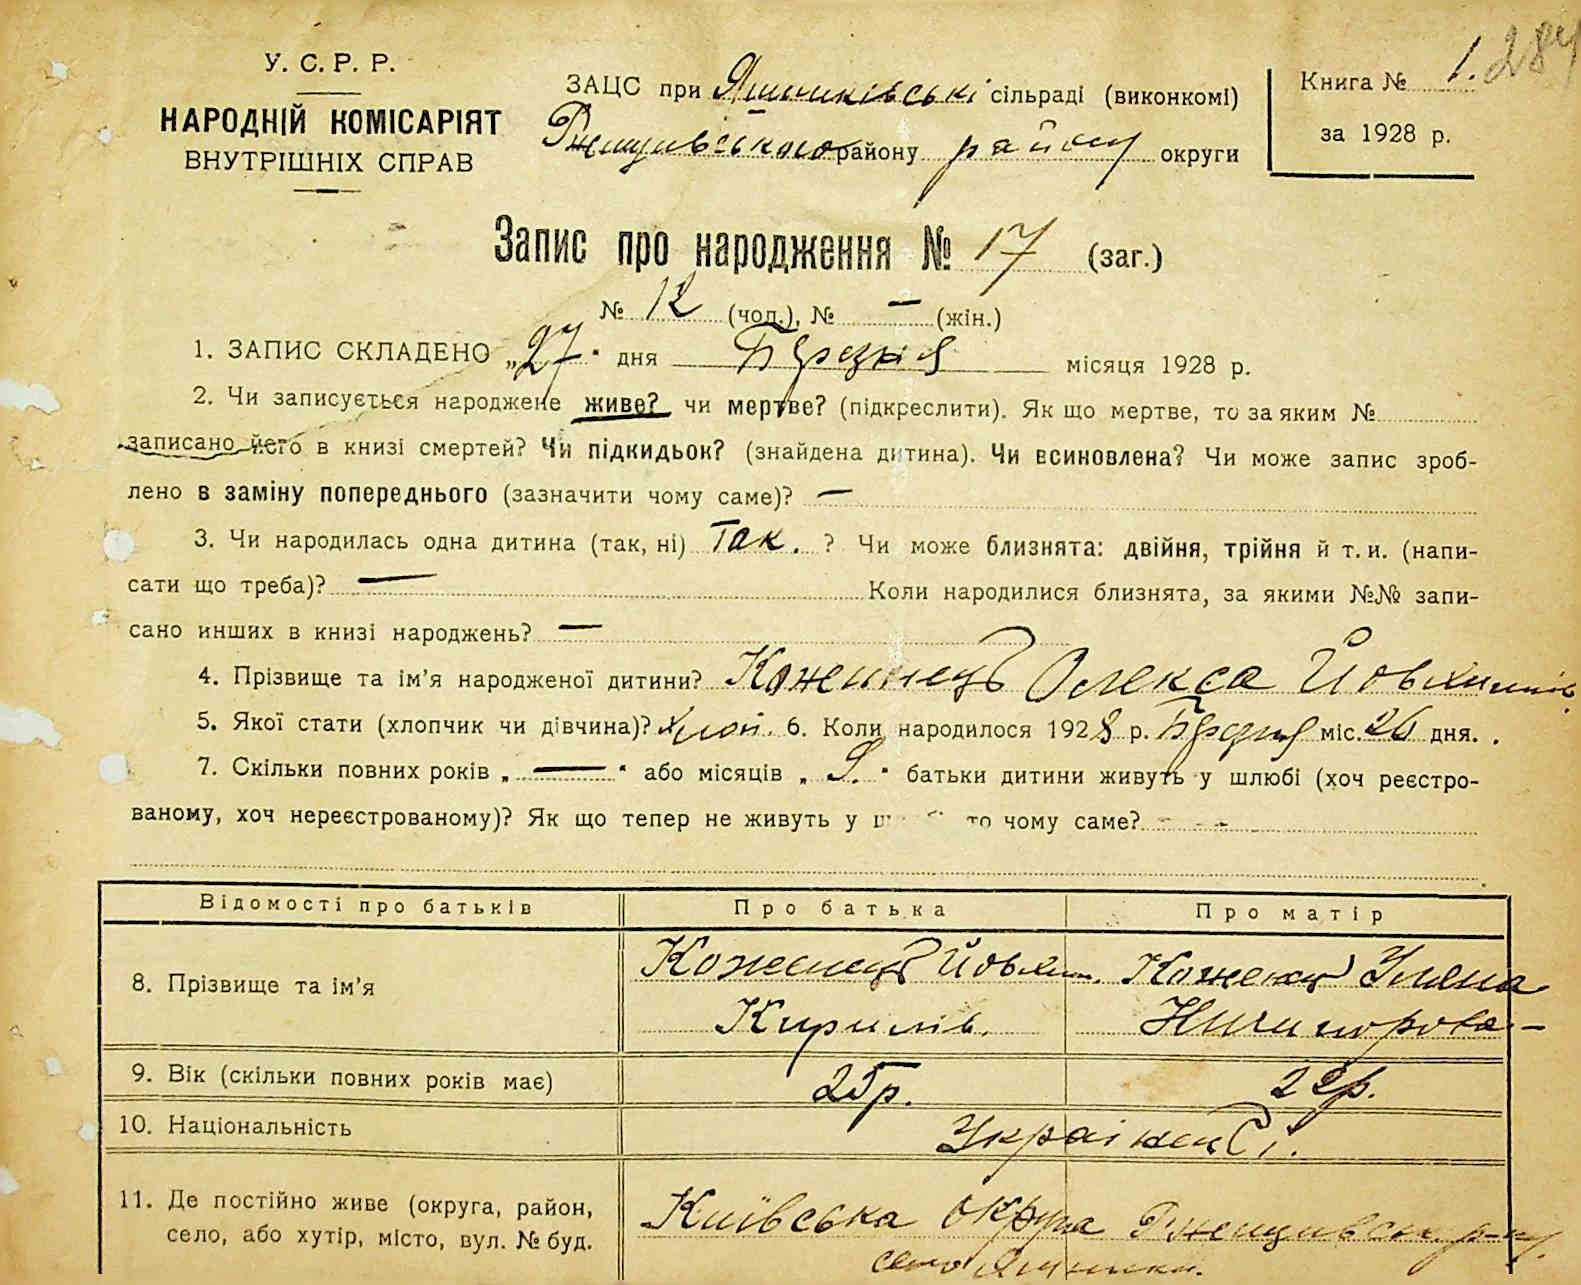 У. С. Р. Р.
НАРОДНІЙ КОМІСАРІЯТ
ВНУТРІШНІХ СПРАВ
ЗАЦС при Яшниківські сільраді (виконкомі)
Ржищівського району району округи
Книга № 1. 284
за 1928 р.
Запис про народження № 17 (заг.)
№ 12 (чол.), № — (жін.)
1. ЗАПИС СКЛАДЕНО „27" дня Березня місяця 1928 р.
2. Чи записується народжене живе? чи мертве? (підкреслити). Як що мертве, то за яким №
записано його в книзі смертей? Чи підкидьок? (знайдена дитина). Чи всиновлена? Чи може запис зроб-
лено в заміну попереднього (зазначити чому саме)? —
3. Чи народилась одна дитина (так, ні) Так. ? Чи може близнята: двійня, трійня й т. и. (напи-
сати що треба)? — Коли народилися близнята, за якими №№ запи-
сано инших в книзі народжень? —
4. Прізвище та ім'я народженої дитини? Кожемець Олекса Йовхимів.
5. Якої стати (хлопчик чи дівчина)? хлоп. 6. Коли народилося 1928 р. Березня міс. 26 дня.
7. Скільки повних років „—" або місяців „9." батьки дитини живуть у шлюбі (хоч реєстро-
ваному, хоч нереєстрованому)? Як що тепер не живуть у то чому саме?
Відомості про батьків Про батька Про матір
8. Прізвище та ім'я Кожемець Йовхим. Кожемец Уляна
Кирилів. Ничипорова —
9. Вік (скільки повних років має) 25 р. 22 р.
10. Національність Українці.
11. Де постійно живе (округа, район, Київська округа Ржищивськ. р-ну.
село, або хутір, місто, вул. № буд. село Яшники.